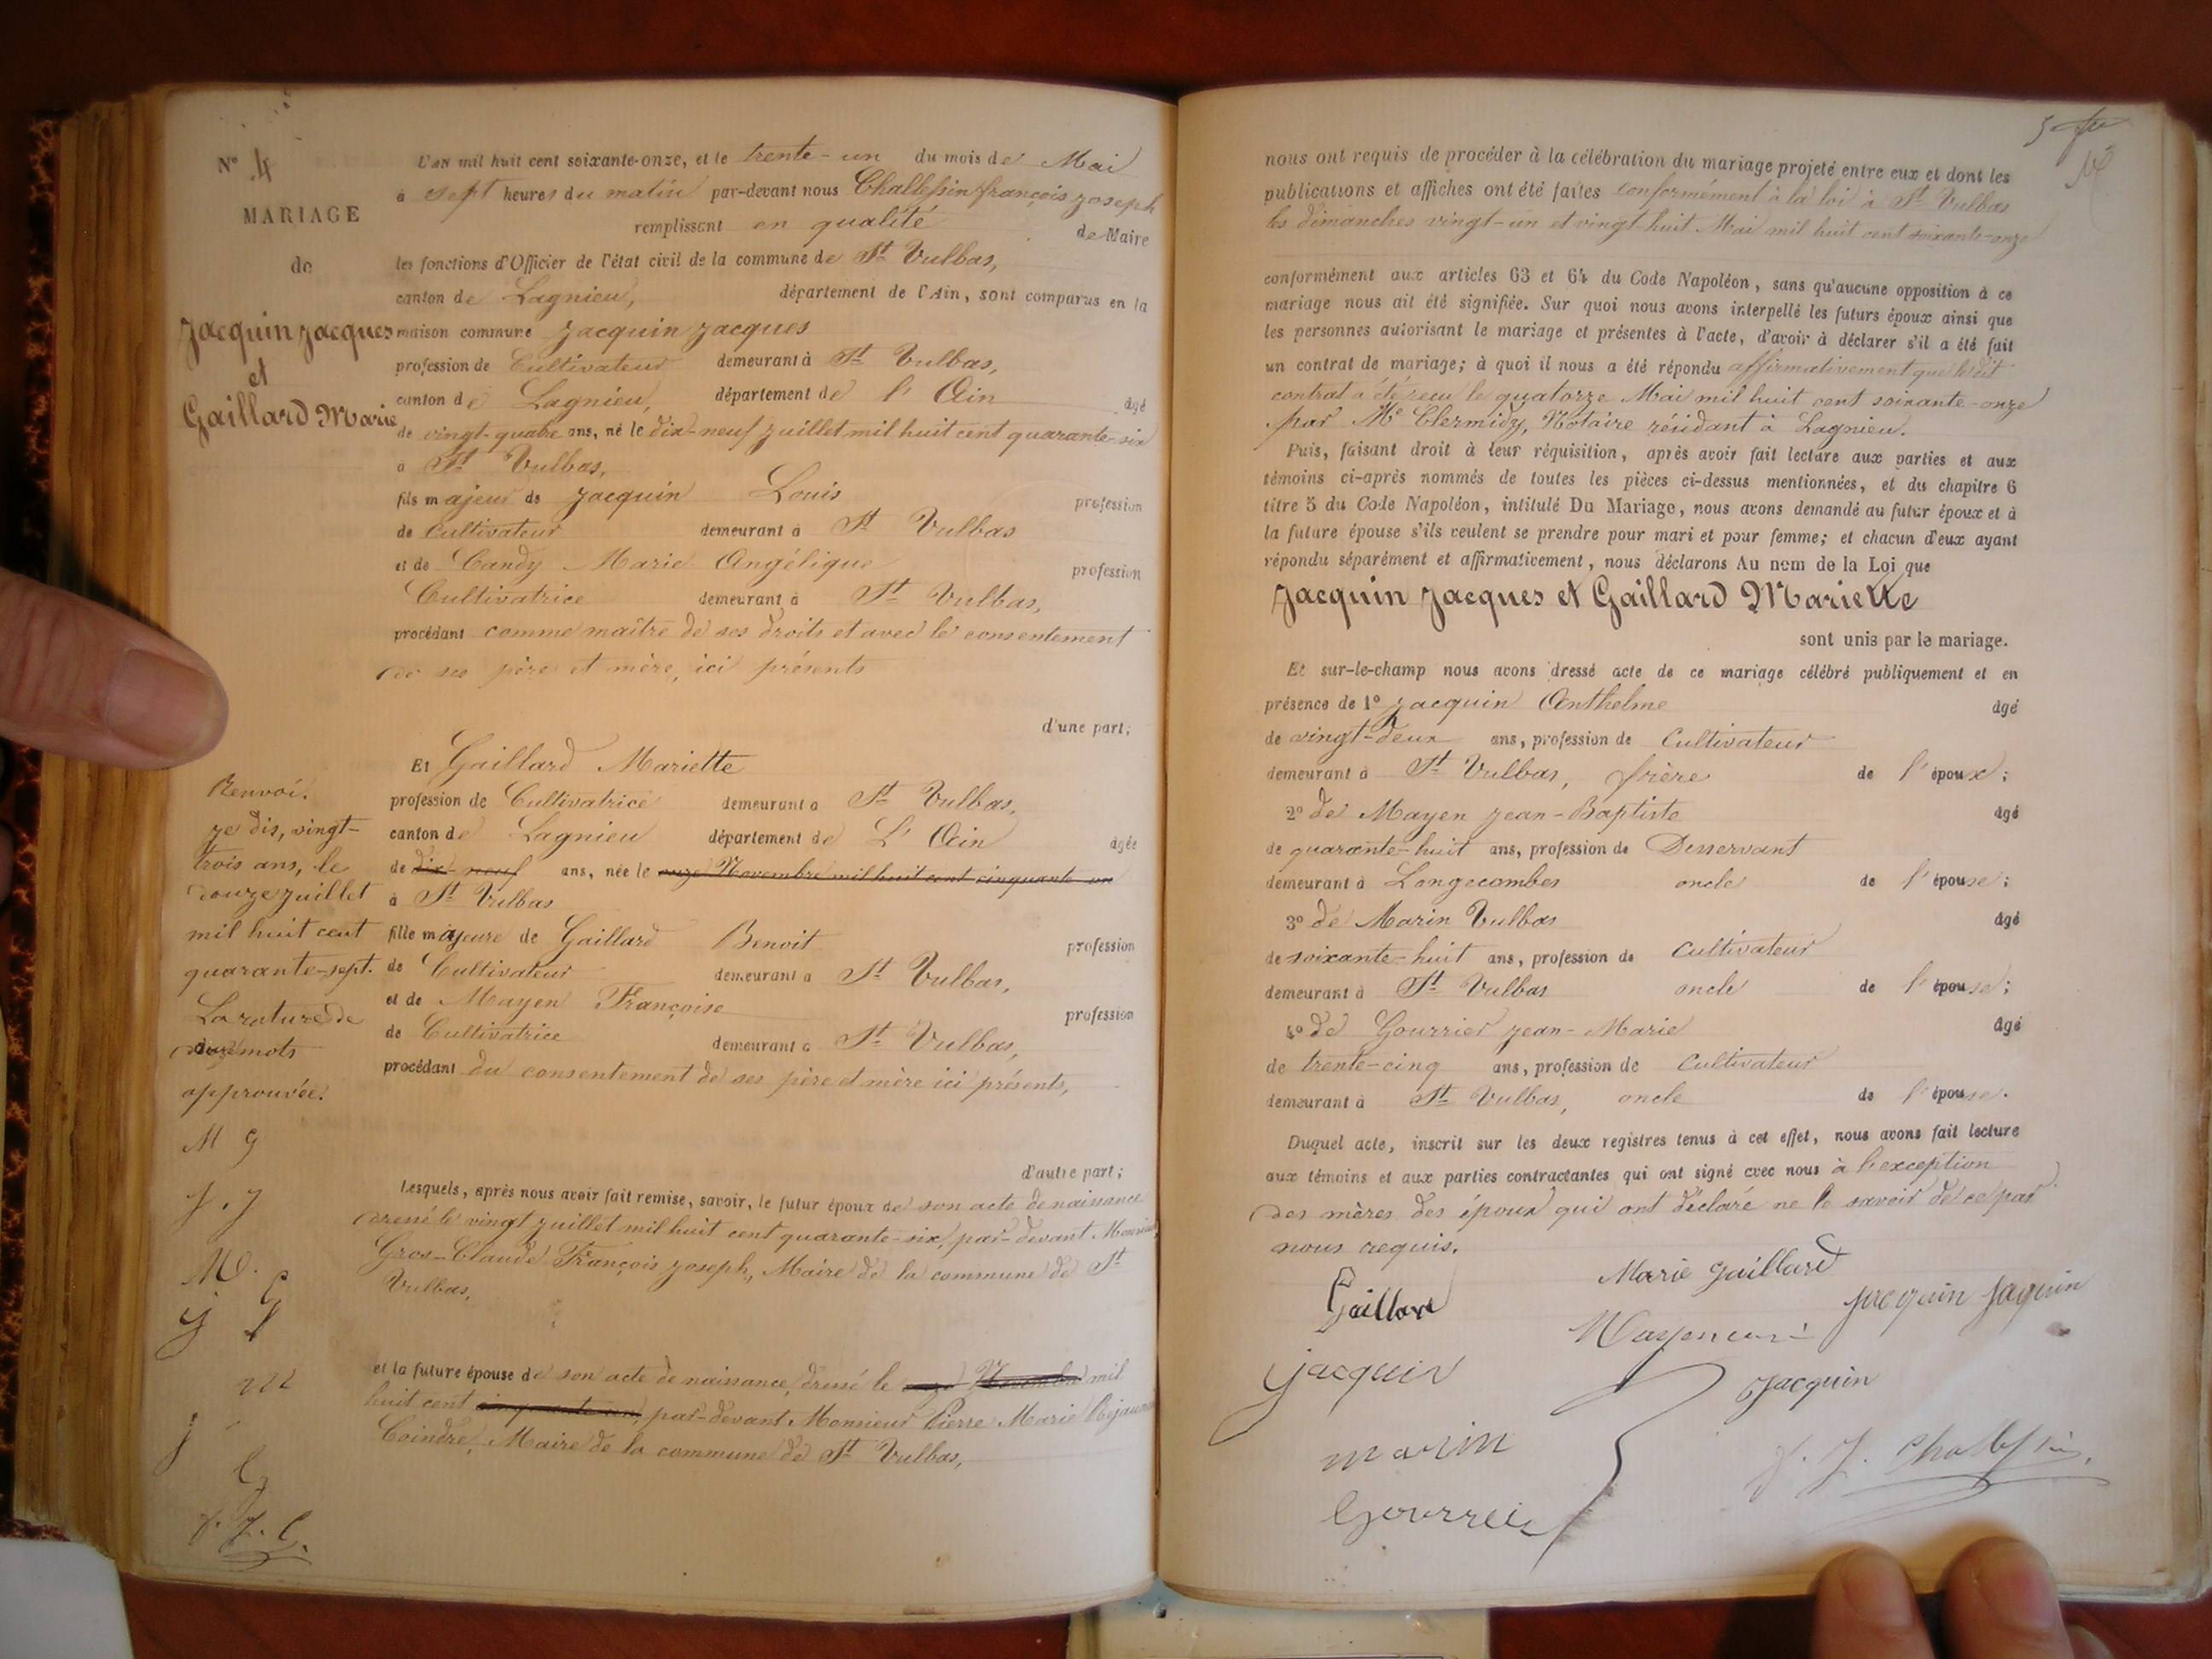 N° 4
MARIAGE
de
Jacquin Jacques
et
Gaillard Marie
L'an mil huit cent soixante-onze, et le trente-un du mois de Mai
à sept heures du matin par-devant nous Challessin françois joseph
remplissant en qualité de Maire
les fonctions d'Officier de l'état civil de la commune de St Vulbas,
canton de Lagnieu, département de l'Ain, sont comparus en la
maison commune Jacquin Jacques
profession de Cultivateur demeurant à St Vulbas,
canton de Lagnieu, département de l'Ain âgé
de vingt-quatre ans, né le dix-neuf juillet mil huit cent quarante-six
à St Vulbas,
fils majeur de Jacquin Louis profession
de Cultivateur demeurant à St Vulbas
et de Candy Marie Angélique profession
Cultivatrice demeurant à St Vulbas,
procédant comme maître de ses droits et avec le consentement
de ses père et mère, ici présents
d'une part;
Et Gaillard Mariette
profession de Cultivatrice demeurant à St Vulbas,
canton de Lagnieu département de L'Ain âgée
de dix-neuf ans, née le onze Novembre mil huit cent cinquante-un
à St Vulbas
fille majeure de Gaillard Benoit profession
de Cultivateur demeurant à St Vulbas,
et de Mayen Françoise profession
de Cultivatrice demeurant à St Vulbas,
procédant du consentement de ses père et mère ici présents,
d'autre part;
Lesquels, après nous avoir fait remise, savoir, le futur époux de son acte de naissance
dressé le vingt juillet mil huit cent quarante-six, par-devant Monsieur
Gros-Claude François joseph, Maire de la commune de St
Vulbas,
et la future épouse de son acte de naissance, dressé le Novembre mil
huit cent cinquante-un, par-devant Monsieur Pierre Marie
Coindre, Maire de la commune de St Vulbas,
Renvoi.
Je dis, vingt-
trois ans, le
douze juillet
mil huit cent
quarante-sept.
La rature de
mots
approuvée.
M G
J. J
M.
G
J
G
m
J
G
f. J. C.
nous ont requis de procéder à la célébration du mariage projeté entre eux et dont les
publications et affiches ont été faites conformément à la loi à St Vulbas
les dimanches vingt-un et vingt-huit Mai mil huit cent soixante-onze
conformément aux articles 63 et 64 du Code Napoléon, sans qu'aucune opposition à ce
mariage nous ait été signifiée. Sur quoi nous avons interpellé les futurs époux ainsi que
les personnes autorisant le mariage et présentes à l'acte, d'avoir à déclarer s'il a été fait
un contrat de mariage; à quoi il nous a été répondu affirmativement que le dit
contrat a été reçu le quatorze Mai mil huit cent soixante-onze
par Me Clermidy, Notaire résidant à Lagnieu.
Puis, faisant droit à leur réquisition, après avoir fait lecture aux parties et aux
témoins ci-après nommés de toutes les pièces ci-dessus mentionnées, et du chapitre 6
titre 5 du Code Napoléon, intitulé Du Mariage, nous avons demandé au futur époux et à
la future épouse s'ils veulent se prendre pour mari et pour femme; et chacun d'eux ayant
répondu séparément et affirmativement, nous déclarons Au nom de la Loi que
Jacquin Jacques et Gaillard Mariette
sont unis par le mariage.
Et sur-le-champ nous avons dressé acte de ce mariage célébré publiquement et en
présence de 1° Jacquin Anthelme âgé
de vingt-deux ans, profession de Cultivateur
demeurant à St Vulbas, frère de l'époux;
2° de Mayen Jean-Baptiste âgé
de quarante-huit ans, profession de Desservant
demeurant à Longecombes oncle de l'épouse;
3° de Marin Vulbas âgé
de soixante-huit ans, profession de Cultivateur
demeurant à St Vulbas oncle de l'épouse;
4° de Gourrier Jean-Marie âgé
de trente-cinq ans, profession de Cultivateur
demeurant à St Vulbas, oncle de l'épouse.
Duquel acte, inscrit sur les deux registres tenus à cet effet, nous avons fait lecture
aux témoins et aux parties contractantes qui ont signé avec nous à l'exception
des mères des époux qui ont déclaré ne le savoir de ce par
nous requis.
Marie gaillard
Gaillard
Jacquin Jaquin
jacquin
Jacquin
marin